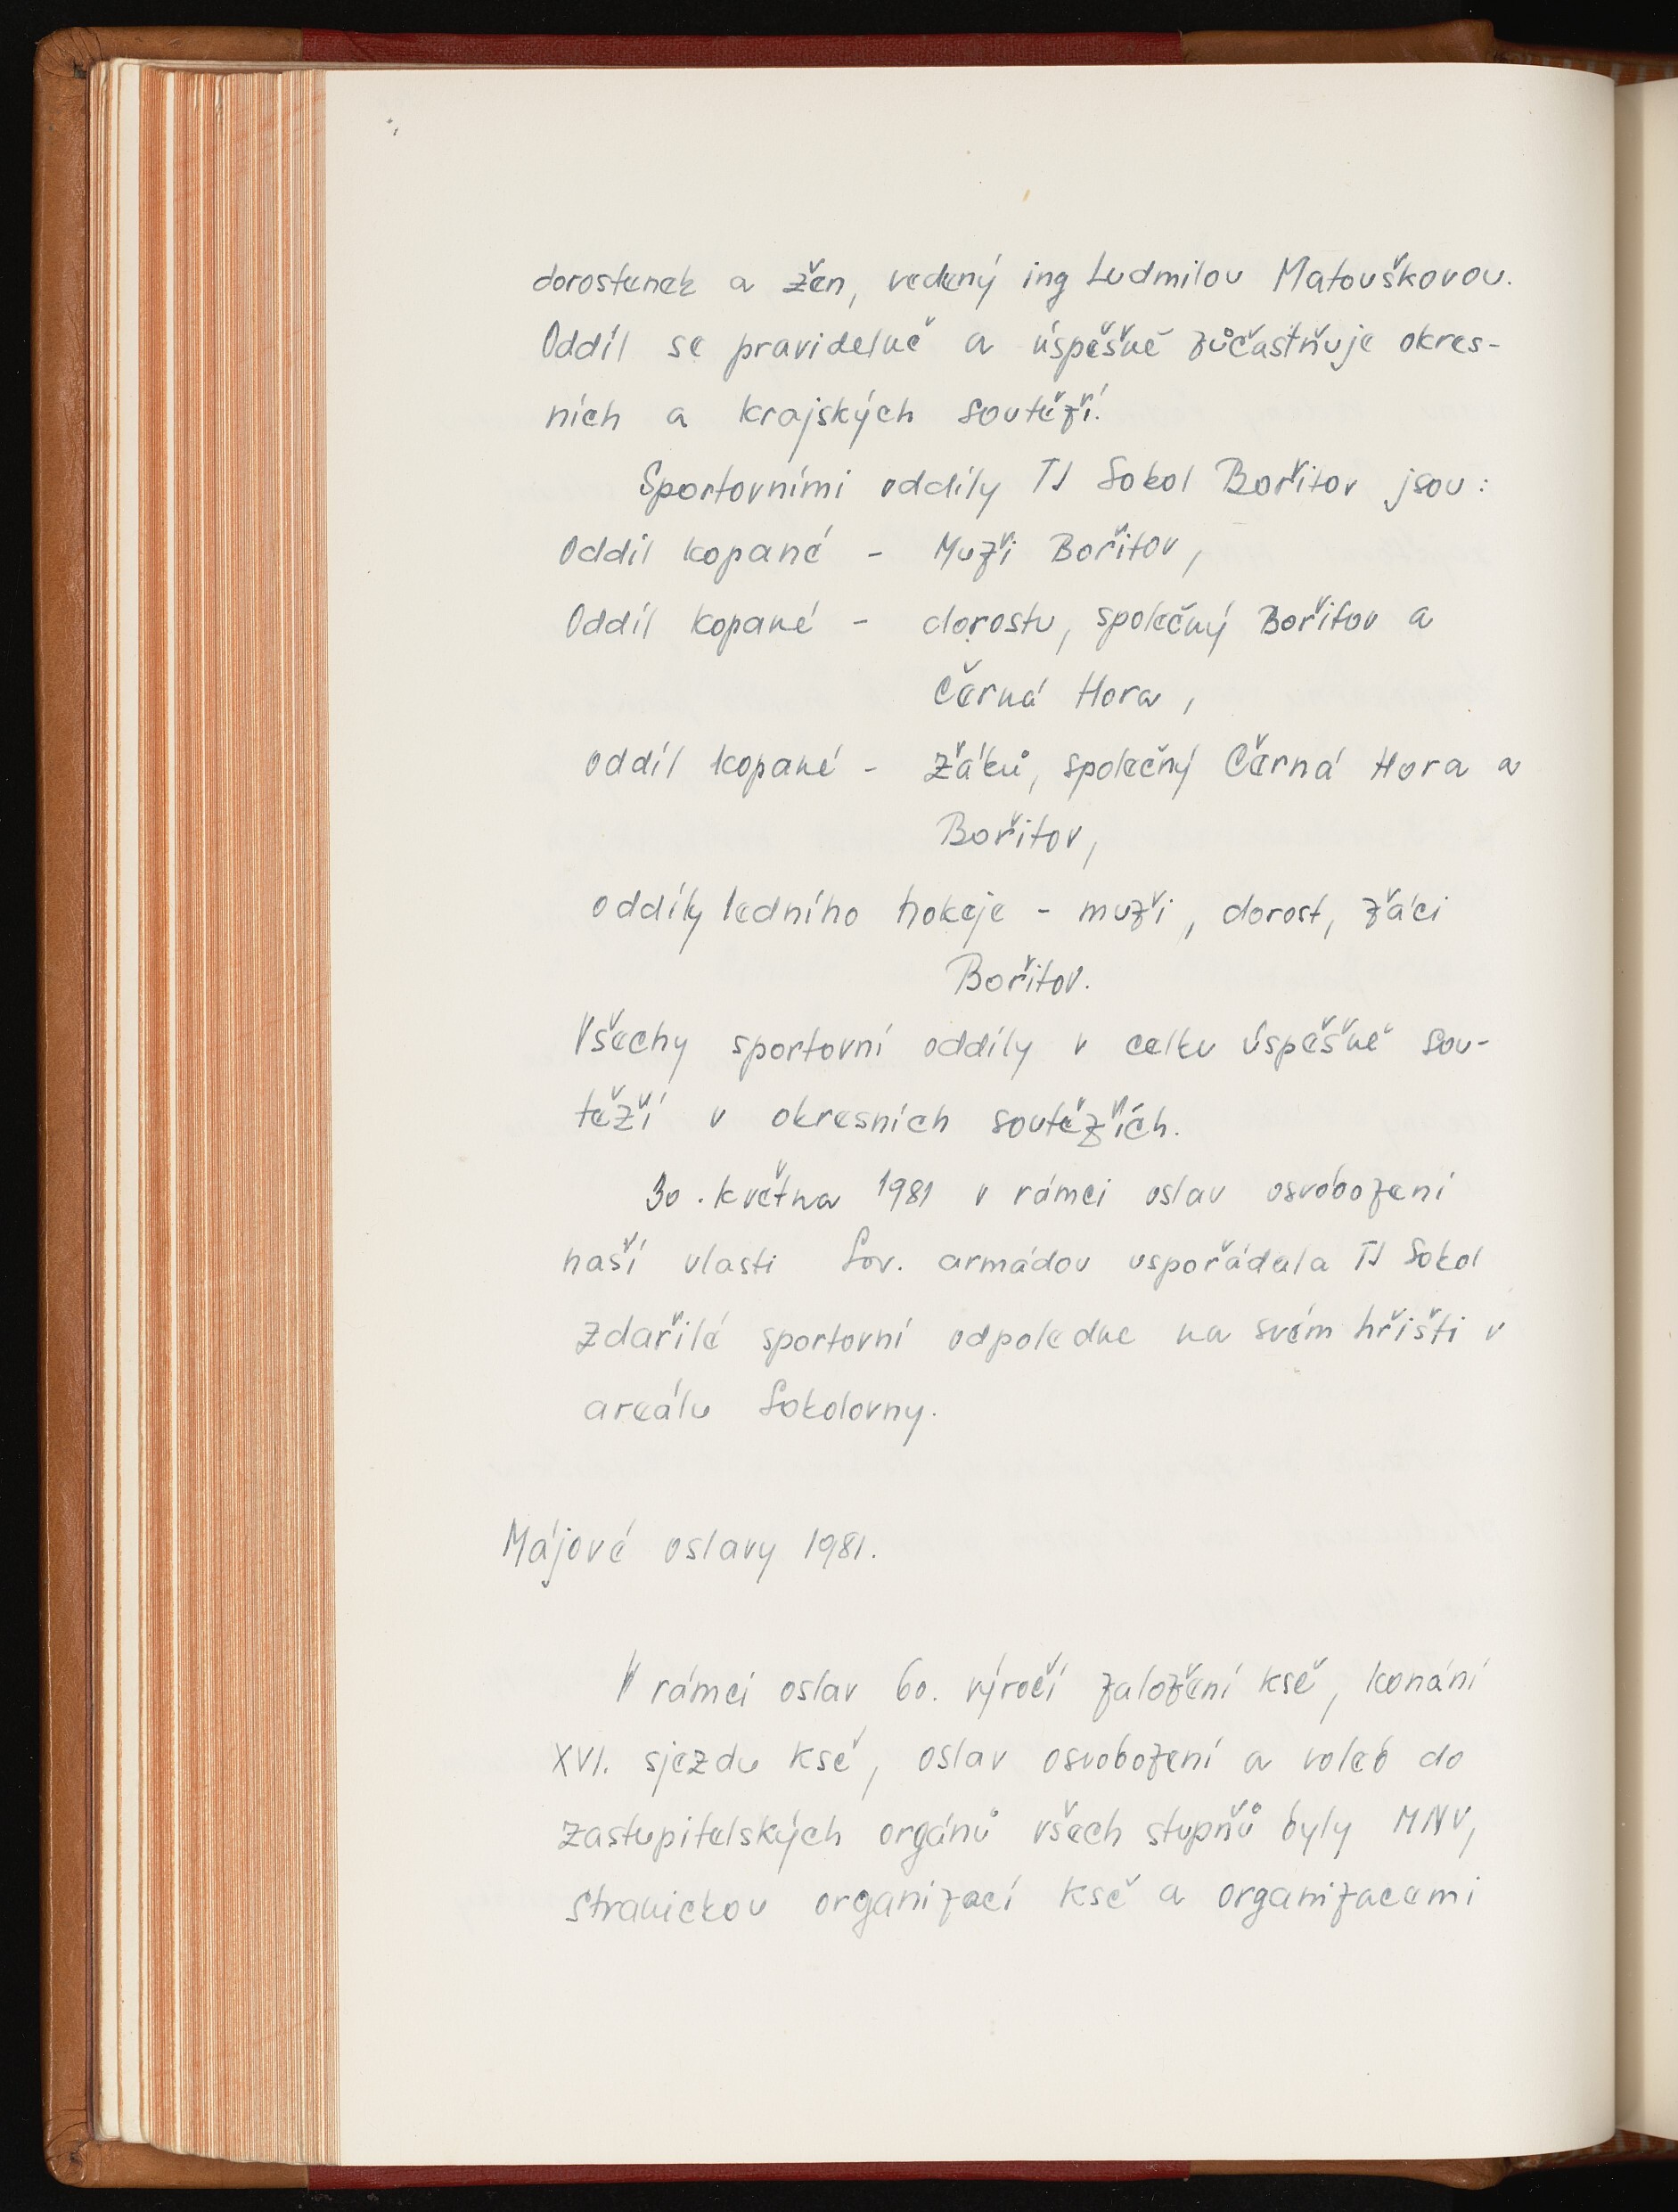 dorostenek a žen, vedený ing Ludmilou Matouškovou.
Oddíl se pravidelně a úspěšně zůčastňuje okres-
ních a krajských soutěží.
Sportovními oddíly TJ Sokol Bořitov jsou:
Oddíl kopané - Muži Bořitov,
Oddíl kopané - dorostu, společný Bořitov a
Černá Hora,
oddíl kopané - žáků, společný Černá Hora a
Bořitov,
oddíly ledního hokeje - muži, dorost, žáci
Bořitov.
Všechy sportovní oddíly v celku úspěšně sou-
těží v okresních soutěžích.
30. května 1981 v rámci oslav osvobození
naší vlasti Sov. armádou uspořádala TJ Sokol
zdařilé sportovní odpoledne na svém hřišti v
areálu Sokolovny.
Májové oslavy 1981.
V rámci oslav 60. výročí založení ksč, konání
XVI. sjezdu ksč, oslav osvobození a voleb do
zastupitelských orgánů všech stupňů byly MNV,
stranickou organizací ksč a organizacemi